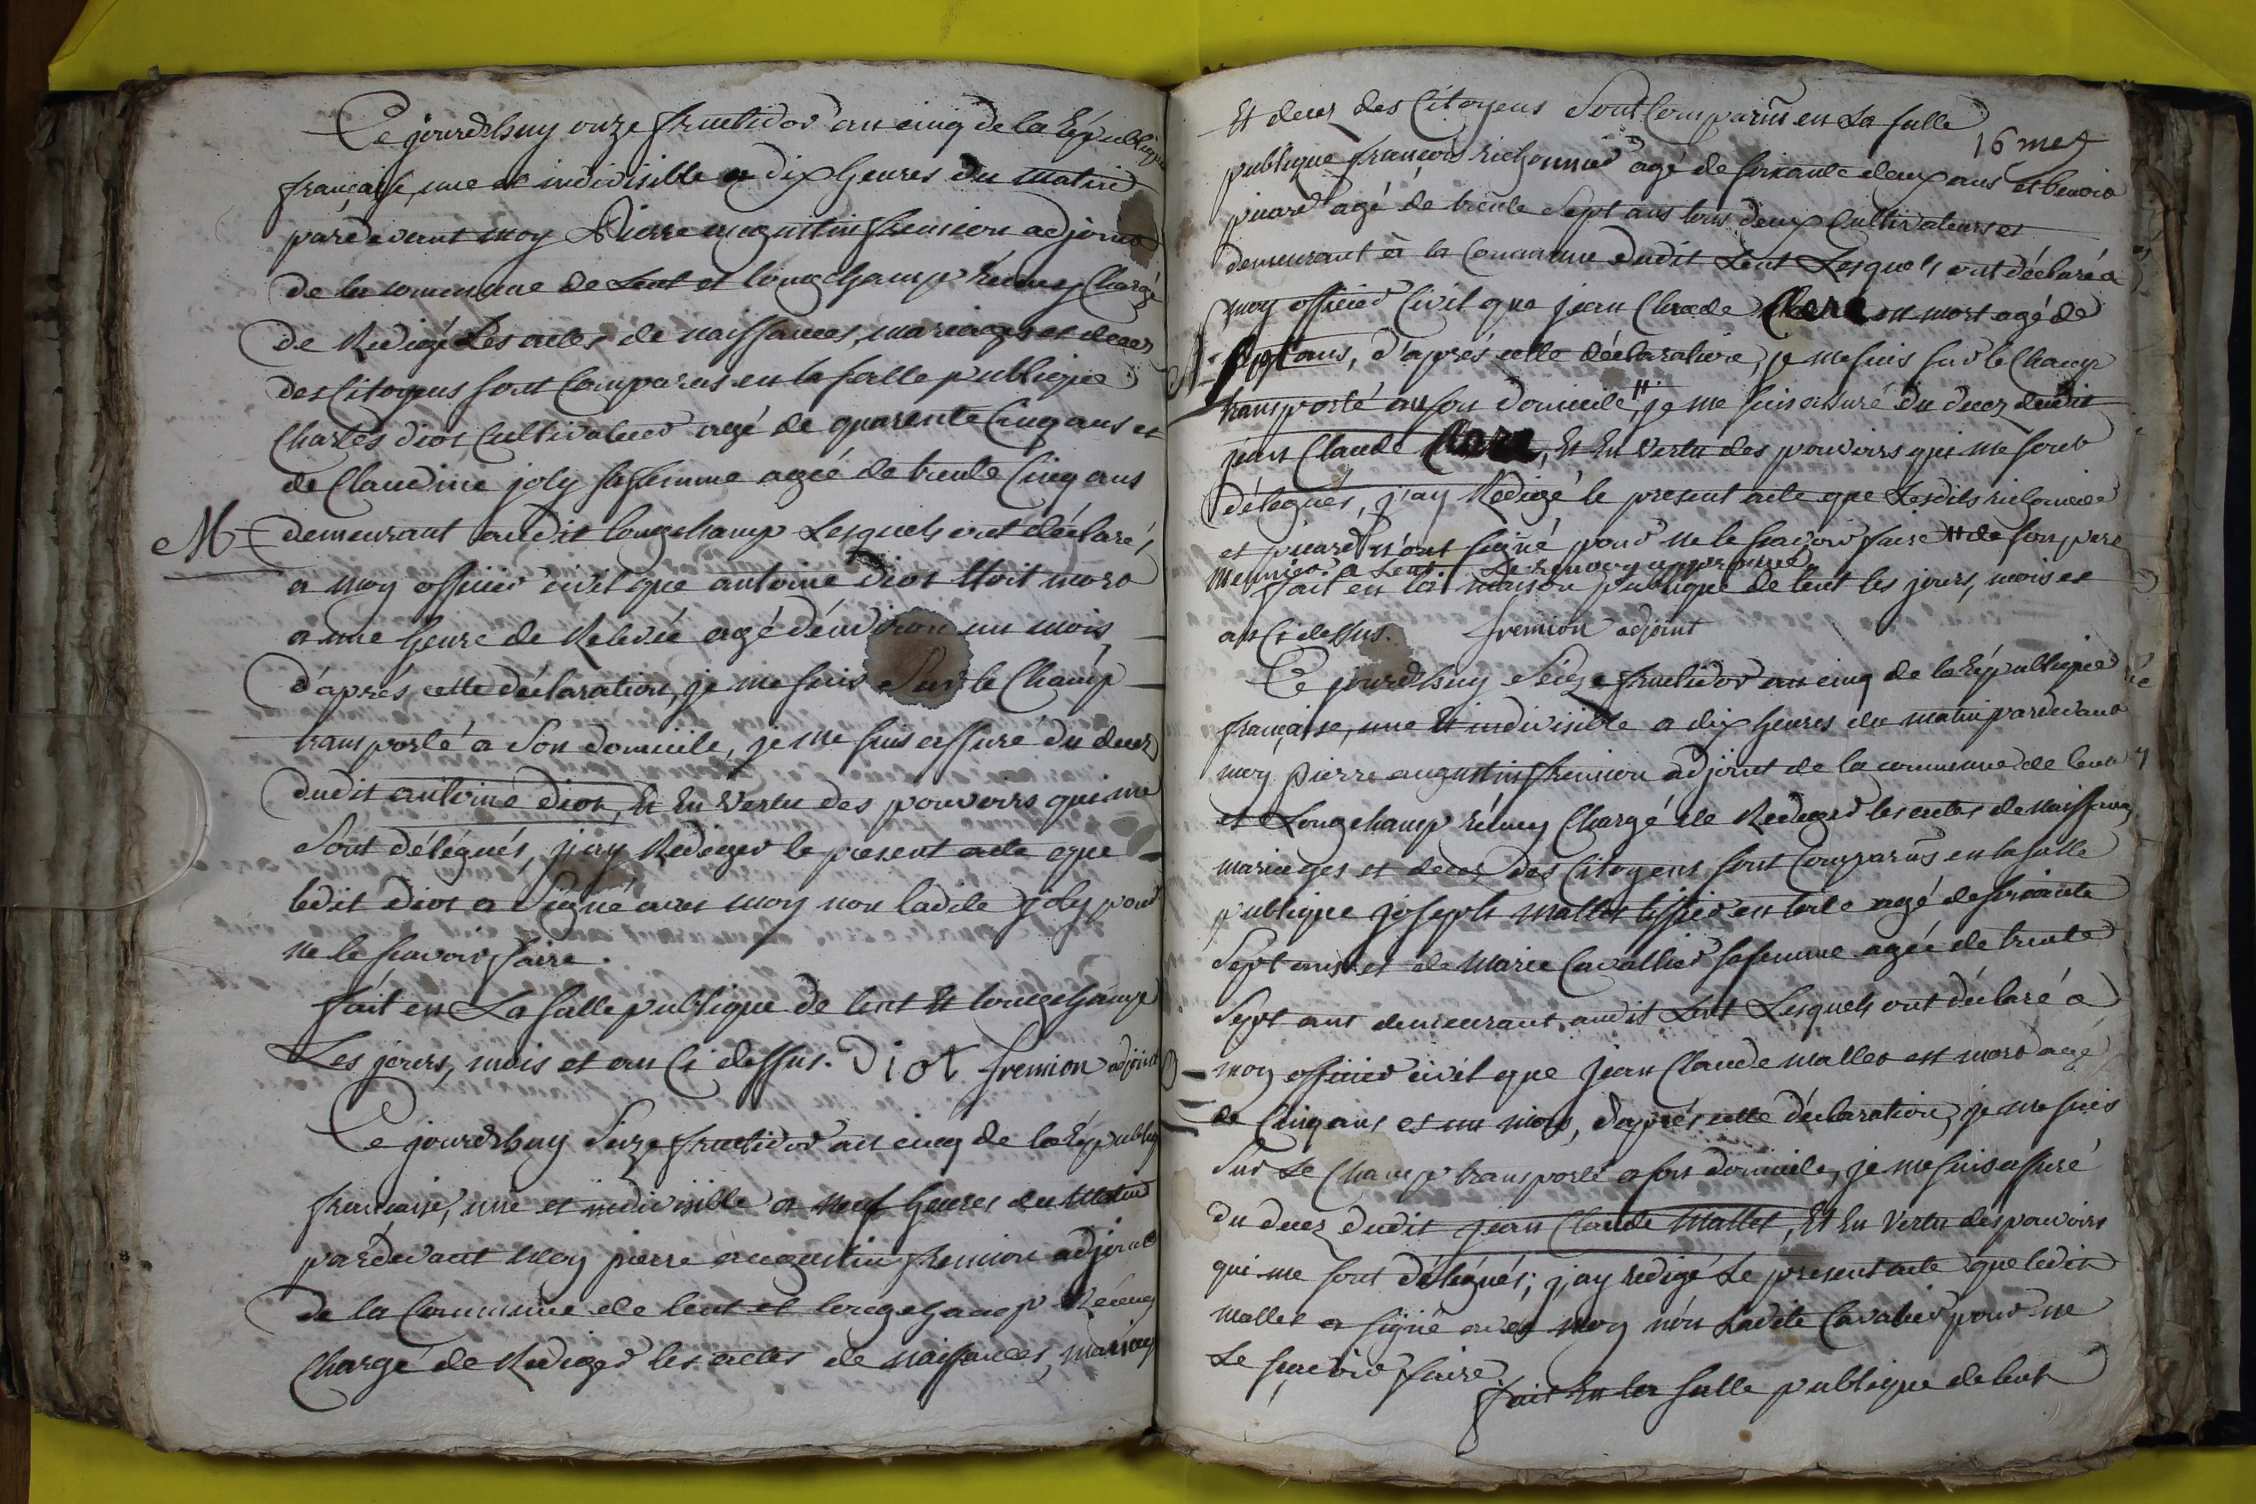 Ce jourdhuy onze fructidor an cinq de la Republique
française, une et indivisible a dix heures du matin
pardevant moy Pierre augustin fremion adjoint
de la commune de Lent et longchamp réuny Chargé
de Redigé Les actes de naissances, mariages et decez
des Citoyens sont Comparus en la salle publique
Charles diot Cultivateur agé de quarente Cinq ans et
de Claudine joly sa femme agée de trente Cinq ans
M demeurant audit longchamp Lesquels ont déclaré
a moy officier civil que antoine diot Etoit mort
a une heure de Relevée agé d'environ un mois
d'aprés cette déclaration, je me suis Sur le Champ
transporté a Son domicile, je me suis assuré du decez
dudit antoine diot, Et En vertu des pouvoirs qui me
Sont délegués, j'ay Rediger le present acte que
ledit diot a Signé avec moy non ladite joly pour
ne le scavoir faire.
fait en La salle publique de lent Et longchamp
Les jours, mois et an Ci dessus. Diot fremion adjoint
Ce jourdhuy Seize fructidor an cinq de la Republiq
française, une et indivisible a neuf heures du Matin
pardevant moy pierre augustin fremion adjoint
de la Commune de lent et longchamp Réuny
Chargé de Rediger les actes de naissances, mariages
Et decez des Citoyens Sont Comparus en La salle
16 mes
publique françois richonnier agé de soixante deux ans et benoit
picard agé de trente Sept ans tous deux Cultivateurs et
demeurant a la Commune dudit Lent Lesquels ont déclaré a
moy officier Civil que jean Claude est mort agé de
N. Sept ans, d'aprés cette déclaration, je me suis sur le Champ
transporté au son domicile #, je me suis assuré du decez dudit
jean Claude, Et En vertu des pouvoirs qui me sont
délegués, j'ay Redigé le present acte que Lesdits richonnier
et picard n'ont signé pour ne le scavoir faire # de son pere
Meunier a Lent Le renvoy approuvé
fait en la maison publique de lent les jours, mois et
an Ci dessus. fremion adjoint
Ce jourdhuy Seize fructidor an cinq de la Republique
française, une Et indivisible a dix heures du matin pardevant
moy pierre augustin fremion adjoint de la commune de lent
et Longchamp réuny Chargé de Rediger les actes de naissances
mariages et decez des Citoyens sont Comparus en la salle
publique joseph mallet tissier en toile agé de soixante
Sept ans et de Marie Cavallier sa femme agée de trente
Sept ans demeurant audit Lent Lesquels ont déclaré a
moy officier civil que jean Claude mallet est mort agé
de Cinq ans et un mois, d'aprés cette déclaration, je me suis
Sur Le Champ transporté a son domicile, je me suis assuré
du decez dudit jean Claude Mallet, Et En Vertu des pouvoirs
qui me sont délegués; j'ay redigé Le present acte que ledit
mallet a signé avec moy non Ladite Cavalier pour ne
Le scavoir faire.
fait En la salle publique de lent